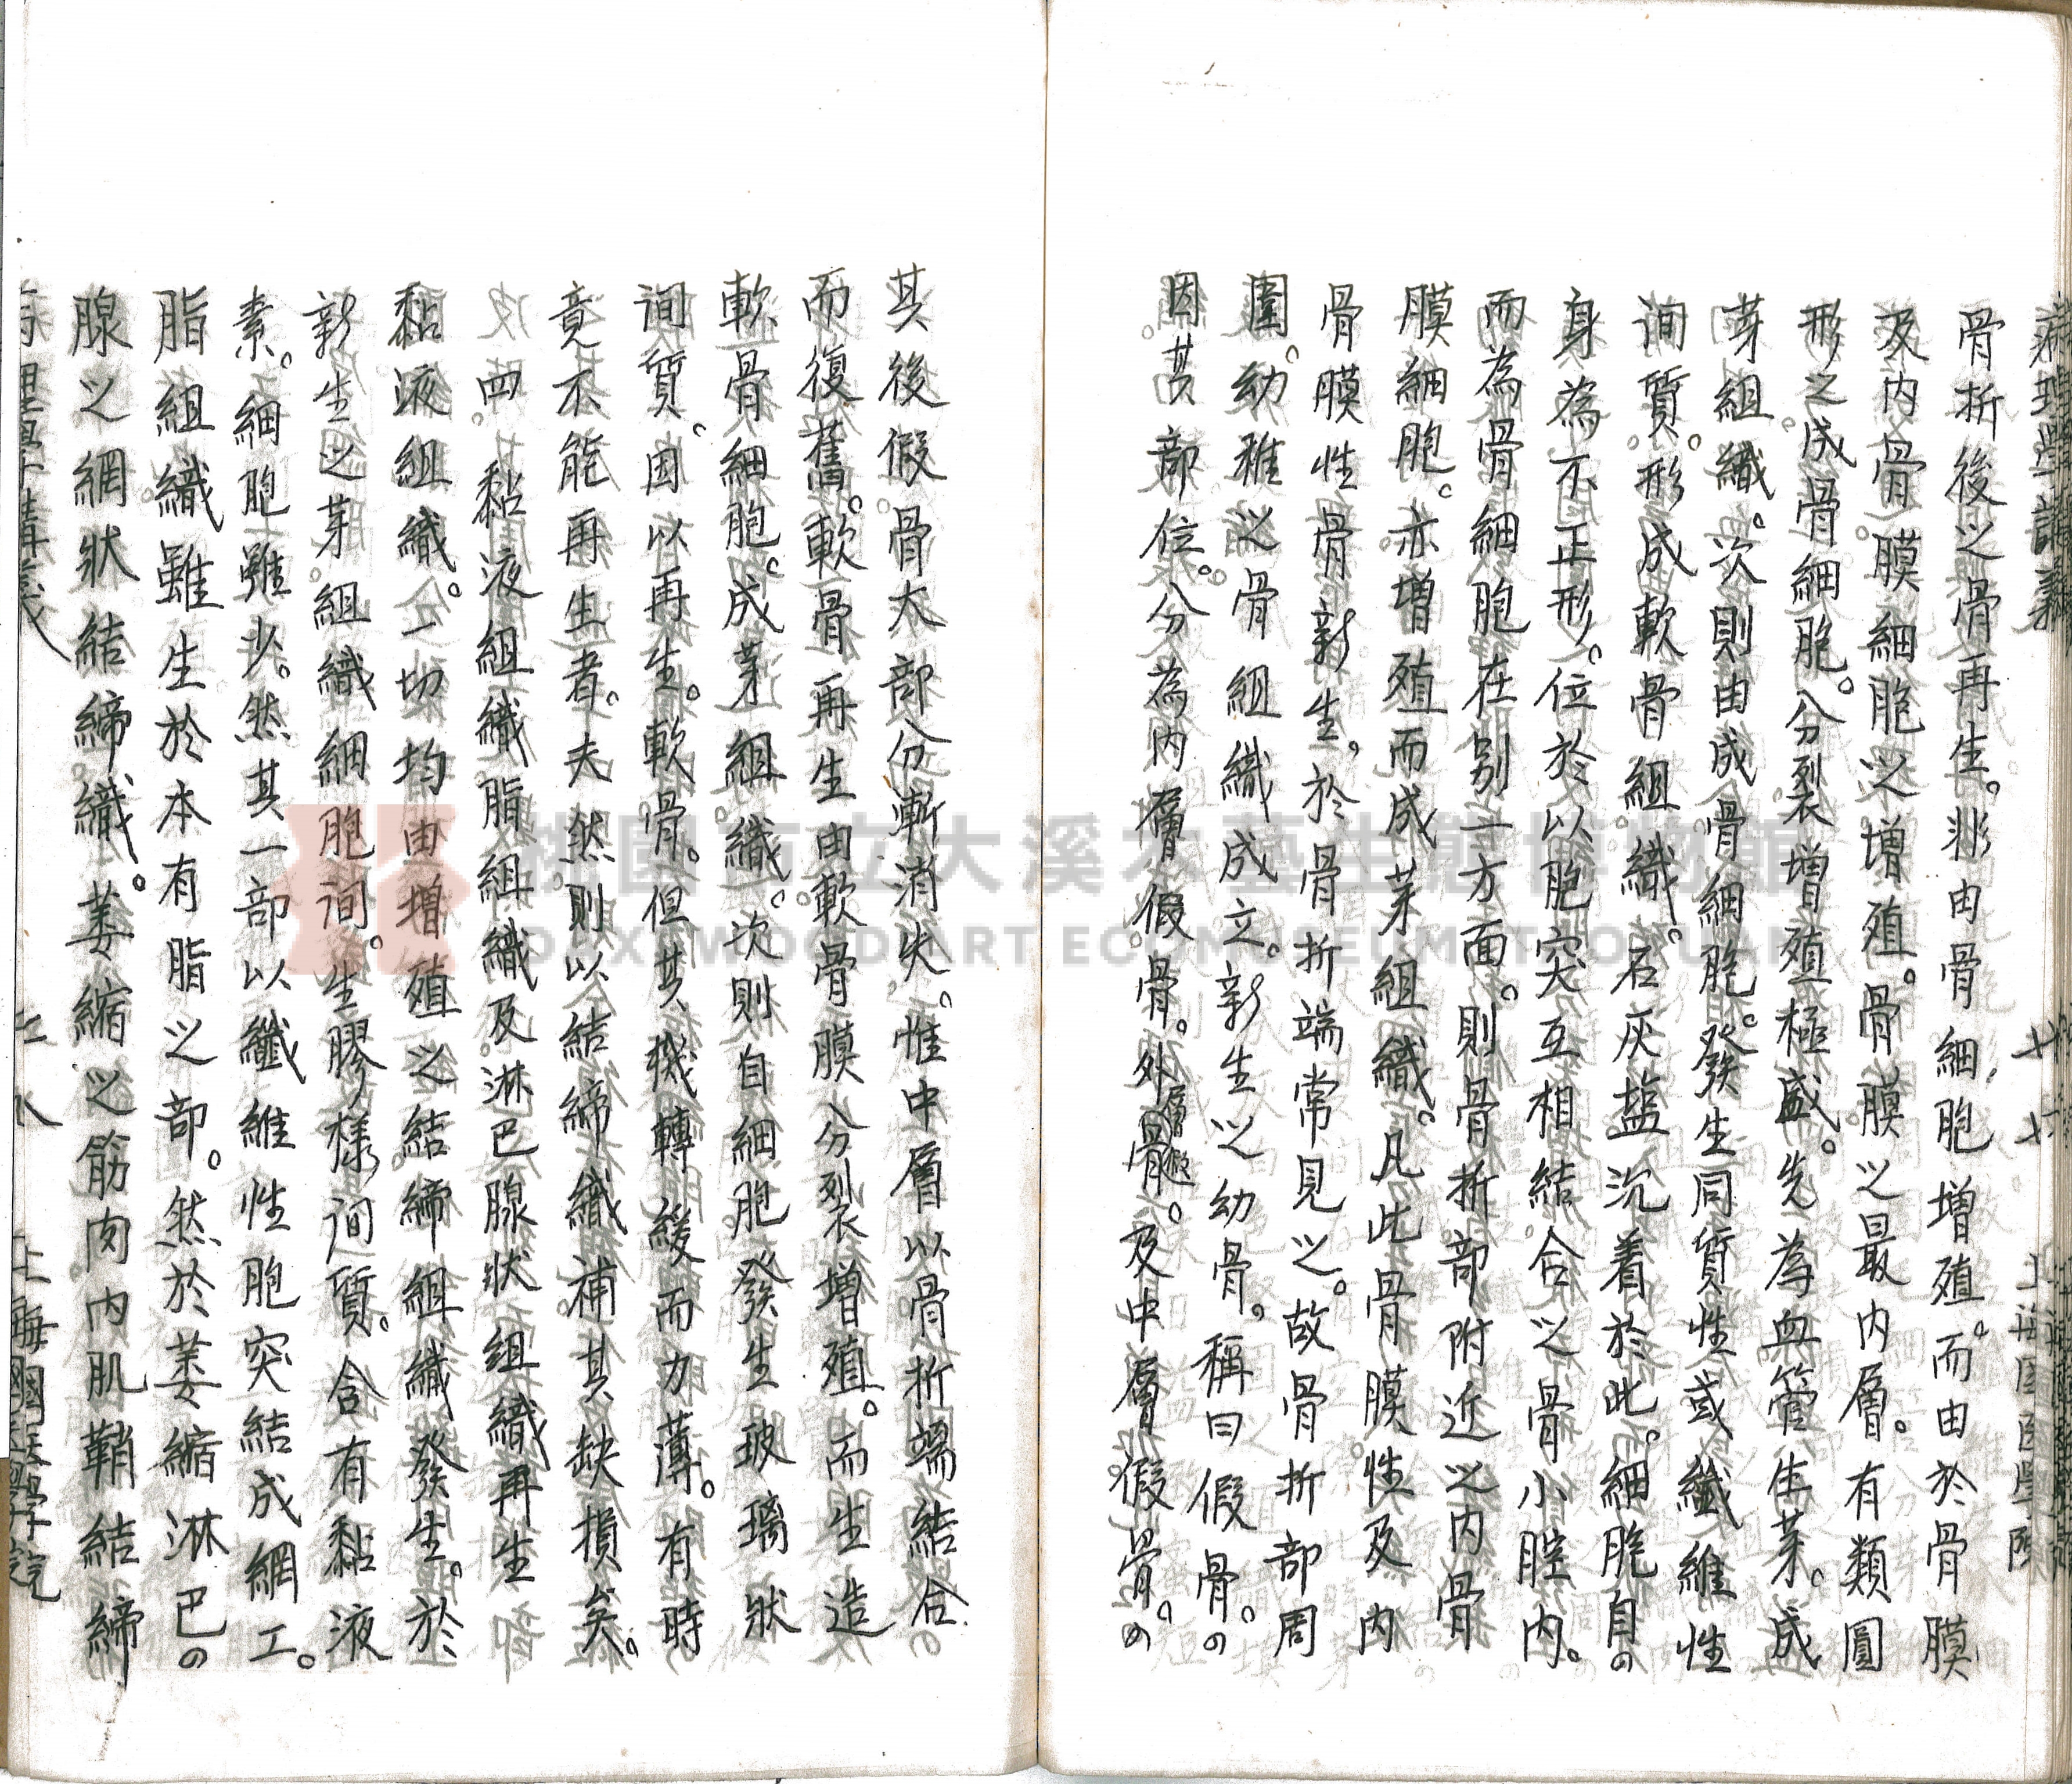 病理學講義
廿六 上海国医學院
骨折後之骨再生。非由骨細胞增殖。而由於骨膜
及内骨膜細胞之增殖。骨膜之最内層。有類圓
形之成骨細胞。分裂增殖極盛。先為血管生芽。成
芽組織。次則由成骨細胞。發生同質性或纖維性
间質。形成軟骨組織。石灰盐沉着於此。細胞自
身為不正形。位於以胞突互相結合之骨小腔内。
而為骨細胞在别一方面。則骨折部附近之内骨
膜細胞。亦增殖而成芽組織。凡此骨膜性及内
骨膜性骨新生。於骨折端常見之。故骨折部周
圍。幼稚之骨組織成立。新生之幼骨。稱曰假骨。
因其部位。分為内層假骨。外層假骨。及中層假骨。
其後假骨大部分漸消失。惟中層以骨折端結合
而復舊。軟骨再生由軟骨膜分裂增殖。而生造
軟骨細胞。成芽組織。次則自細胞發生玻璃狀
间質。因以再生。軟骨。但其機轉緩而力薄。有時
竟不能再生者。夫然則以結締織補其缺損矣。
四。黏液組織脂組織及淋巴腺狀組織再生
黏液組織。一切均由增殖之結締組織發生。於
新生之芽組織細胞间。生膠樣间質。含有黏液
素。細胞雖少。然其一部以纖維性胞突結成網工。
脂組織雖生於本有脂之部。然於萎縮淋巴
腺之網狀結締織。萎縮之筋肉内肌鞘結締
病理學講義
上海國醫學院
桃園市立大溪木藝生態博物館
DAXI WOOD ART ECOMUSEUM, TAOYUAN